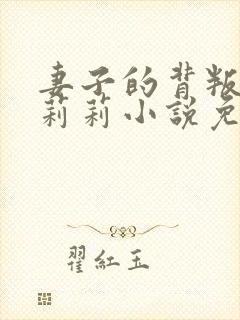 妻子的背叛
莉莉小説免
翟紅玉